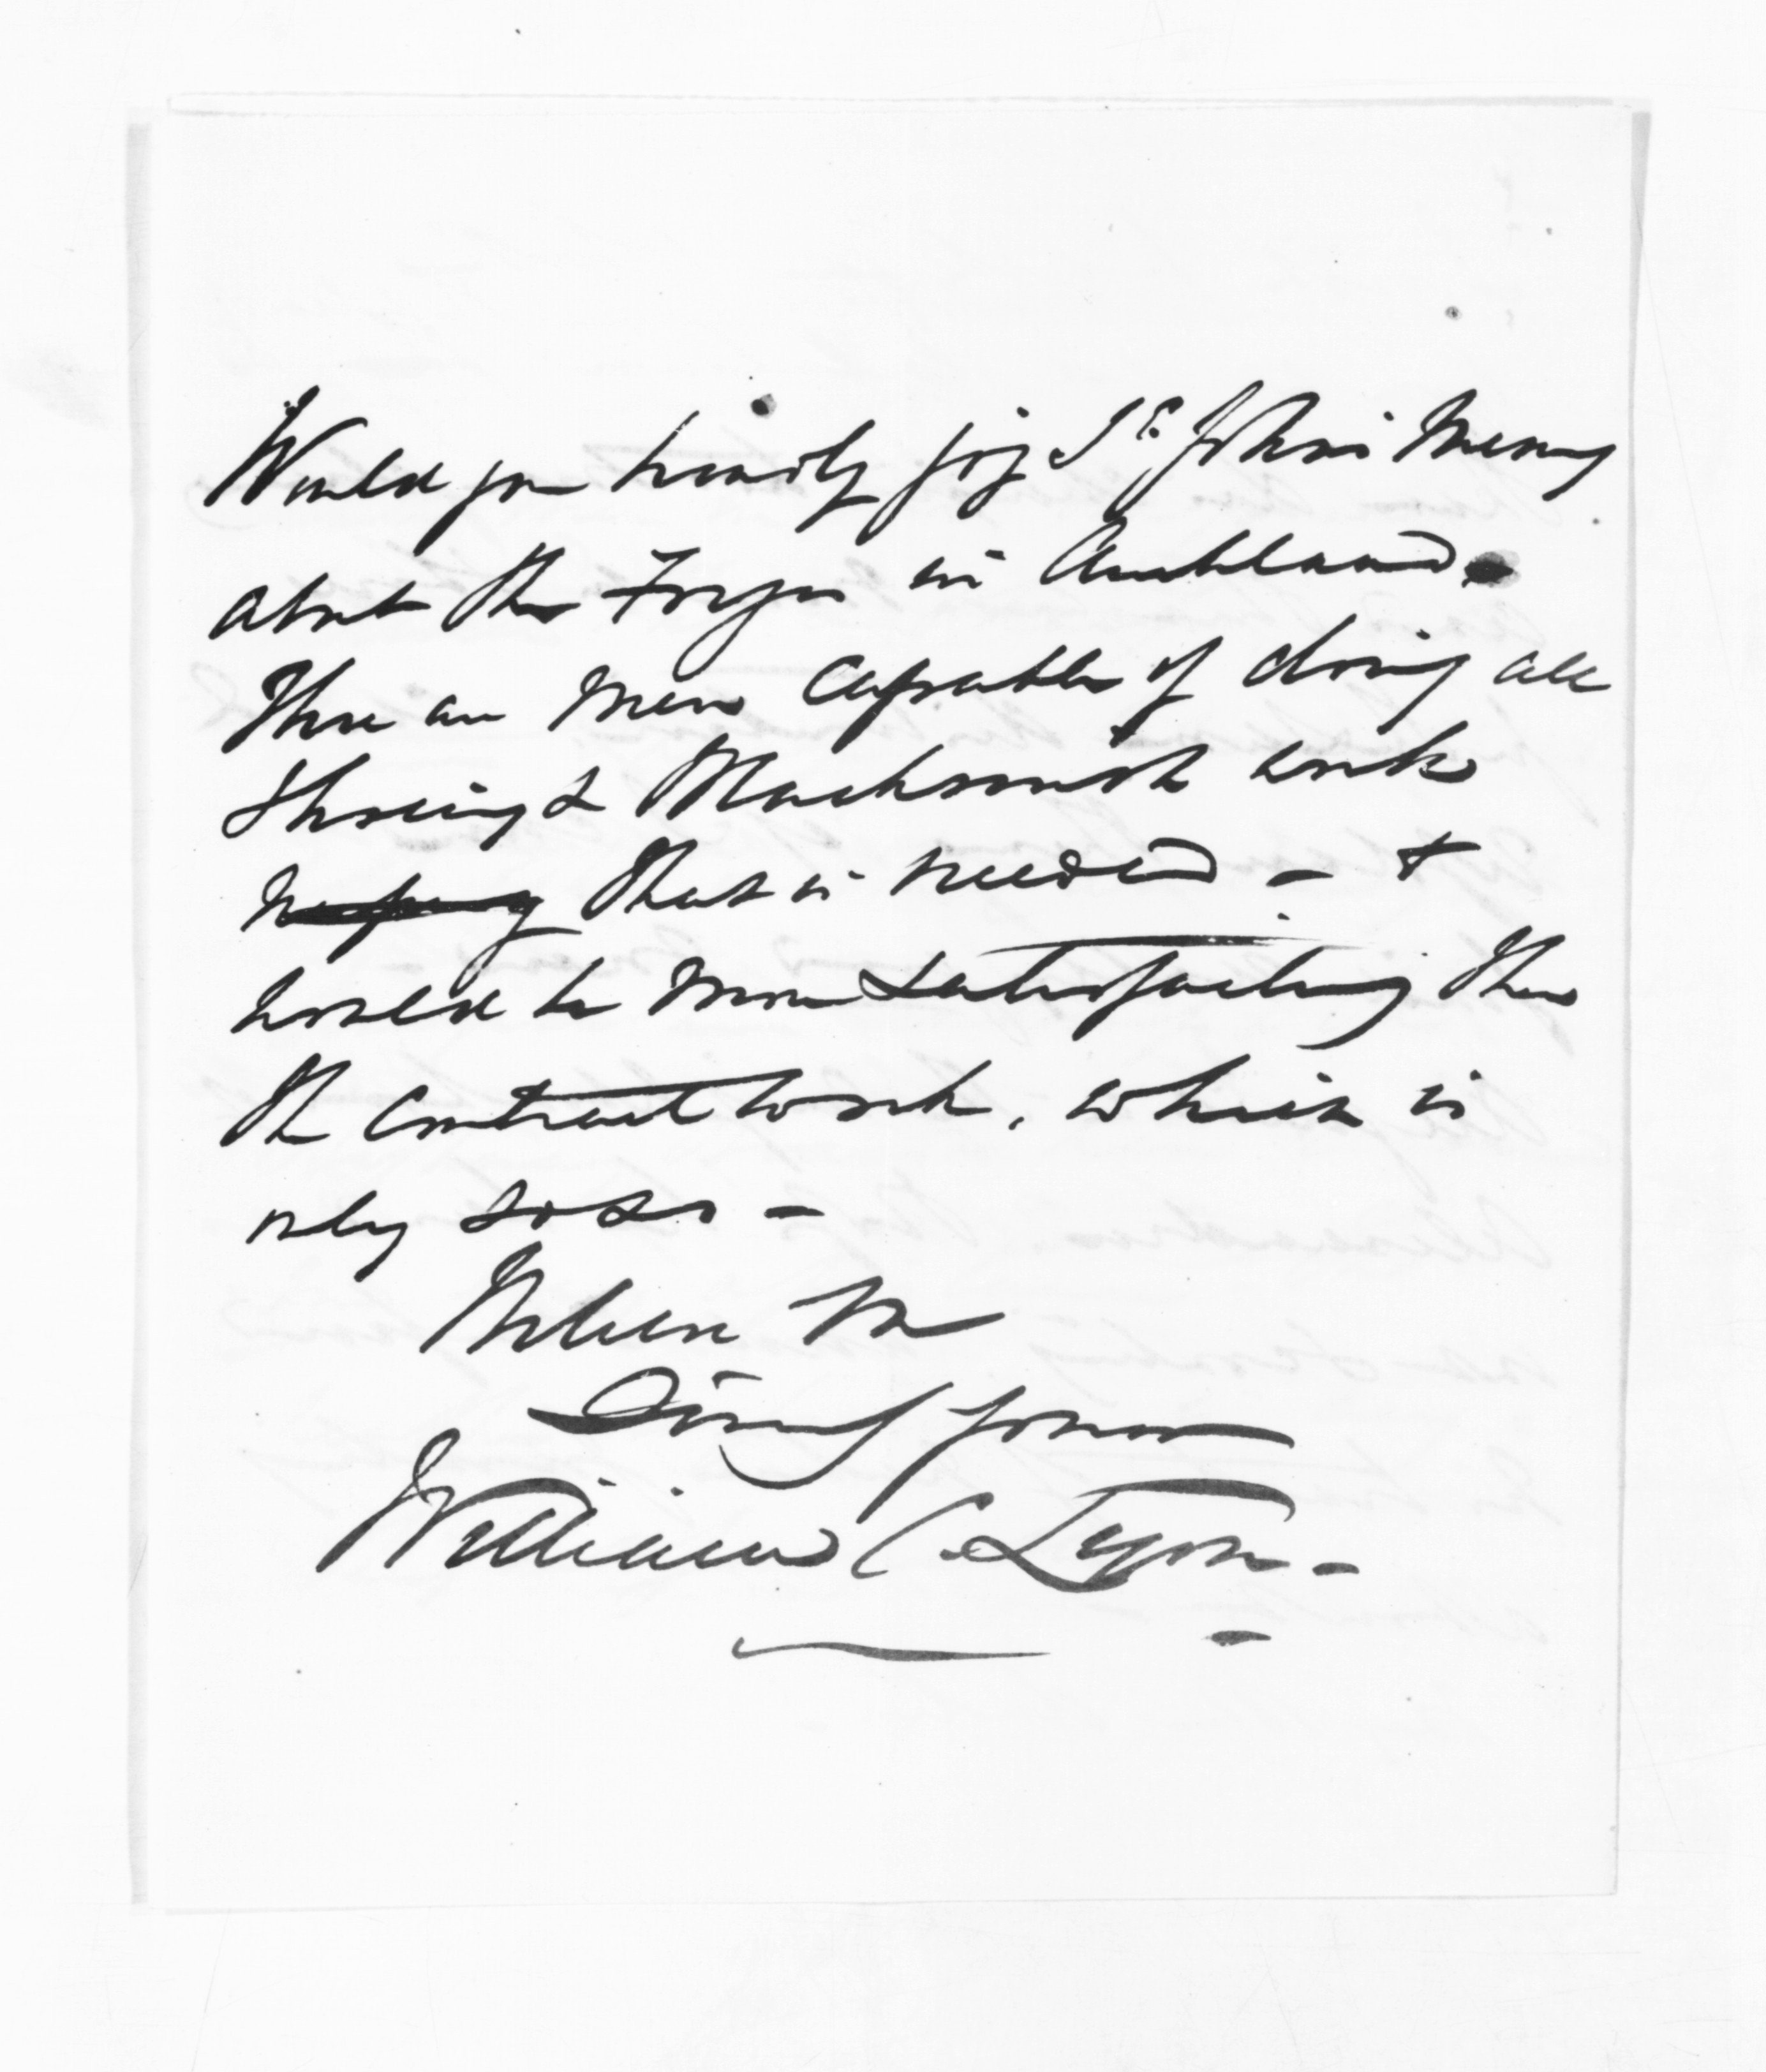 Would you kindly jog St. John's Memy
about the Forge in Auckland.
There are men capable of doing all
Shoeing & Blacksmith work
that is needed – &
would be more satisfactory than
the contract work, which is
only so so –
Believe me
Sincy yours
William C. Lyon –